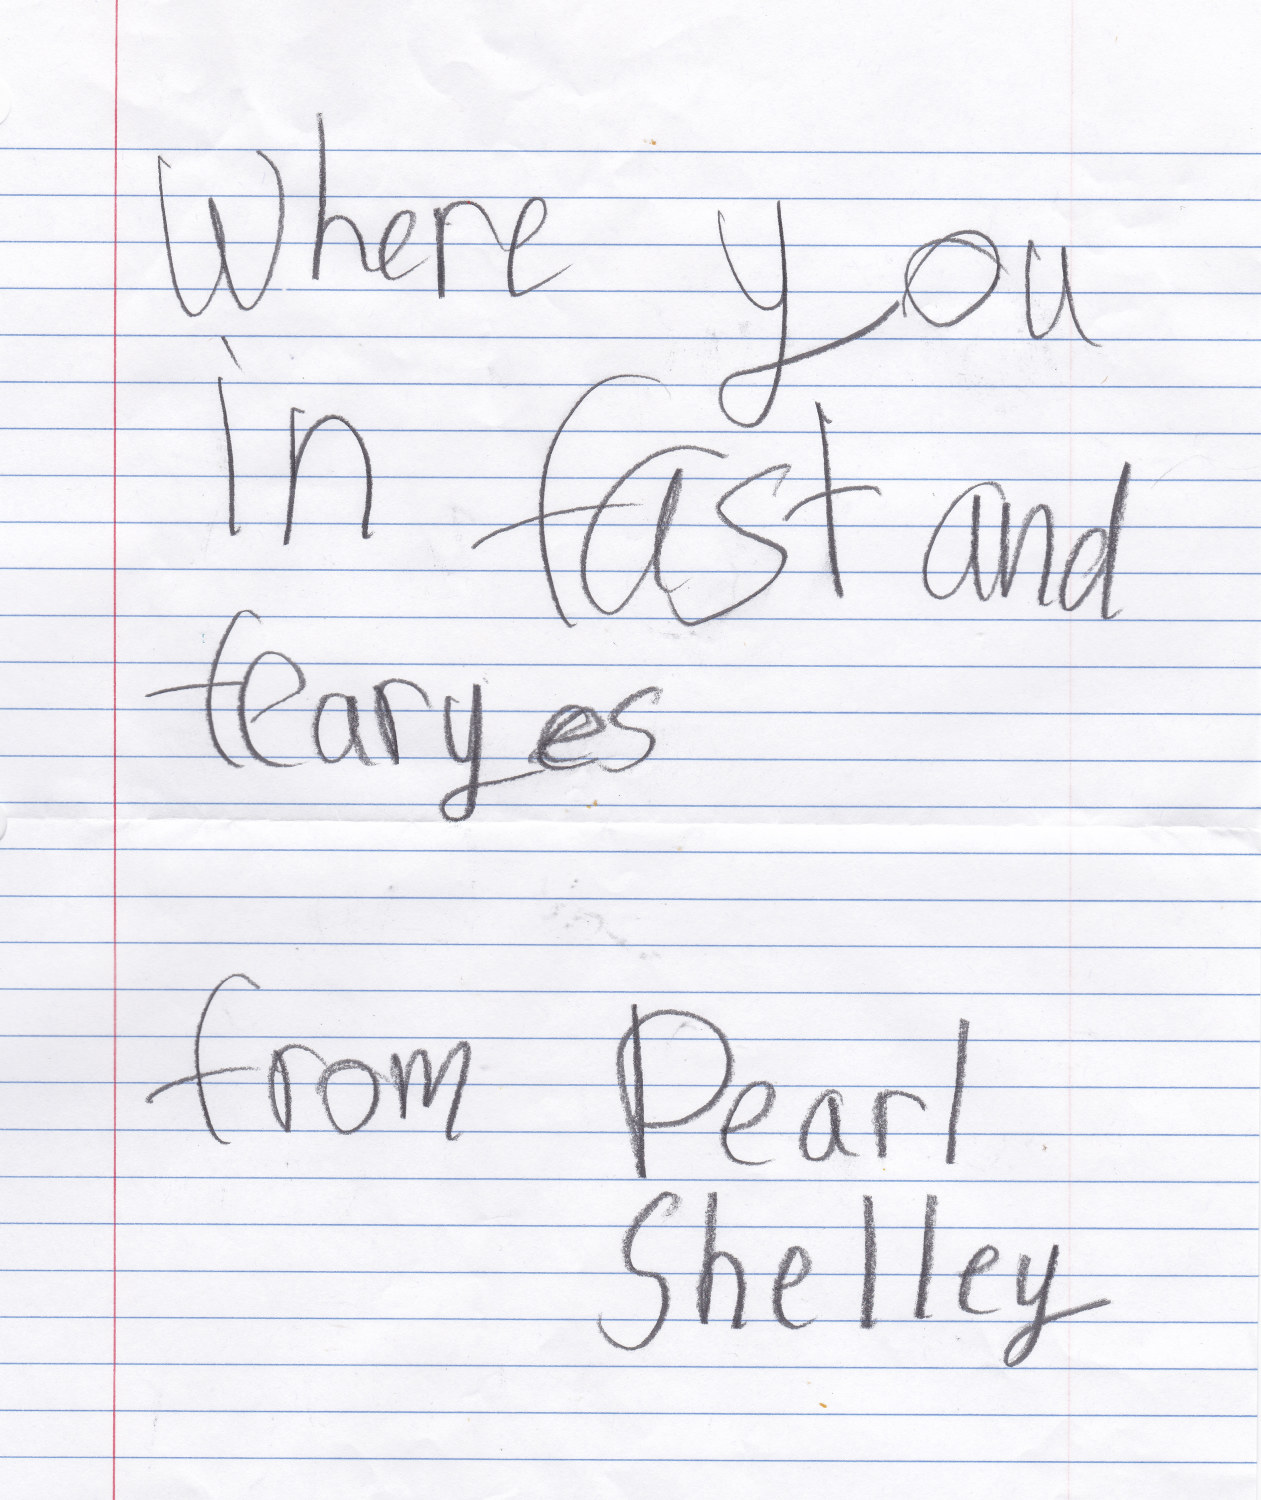 Where you
in fast and
fearyes
from Pearl
Shelley